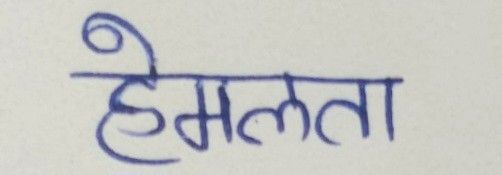 हेमलता